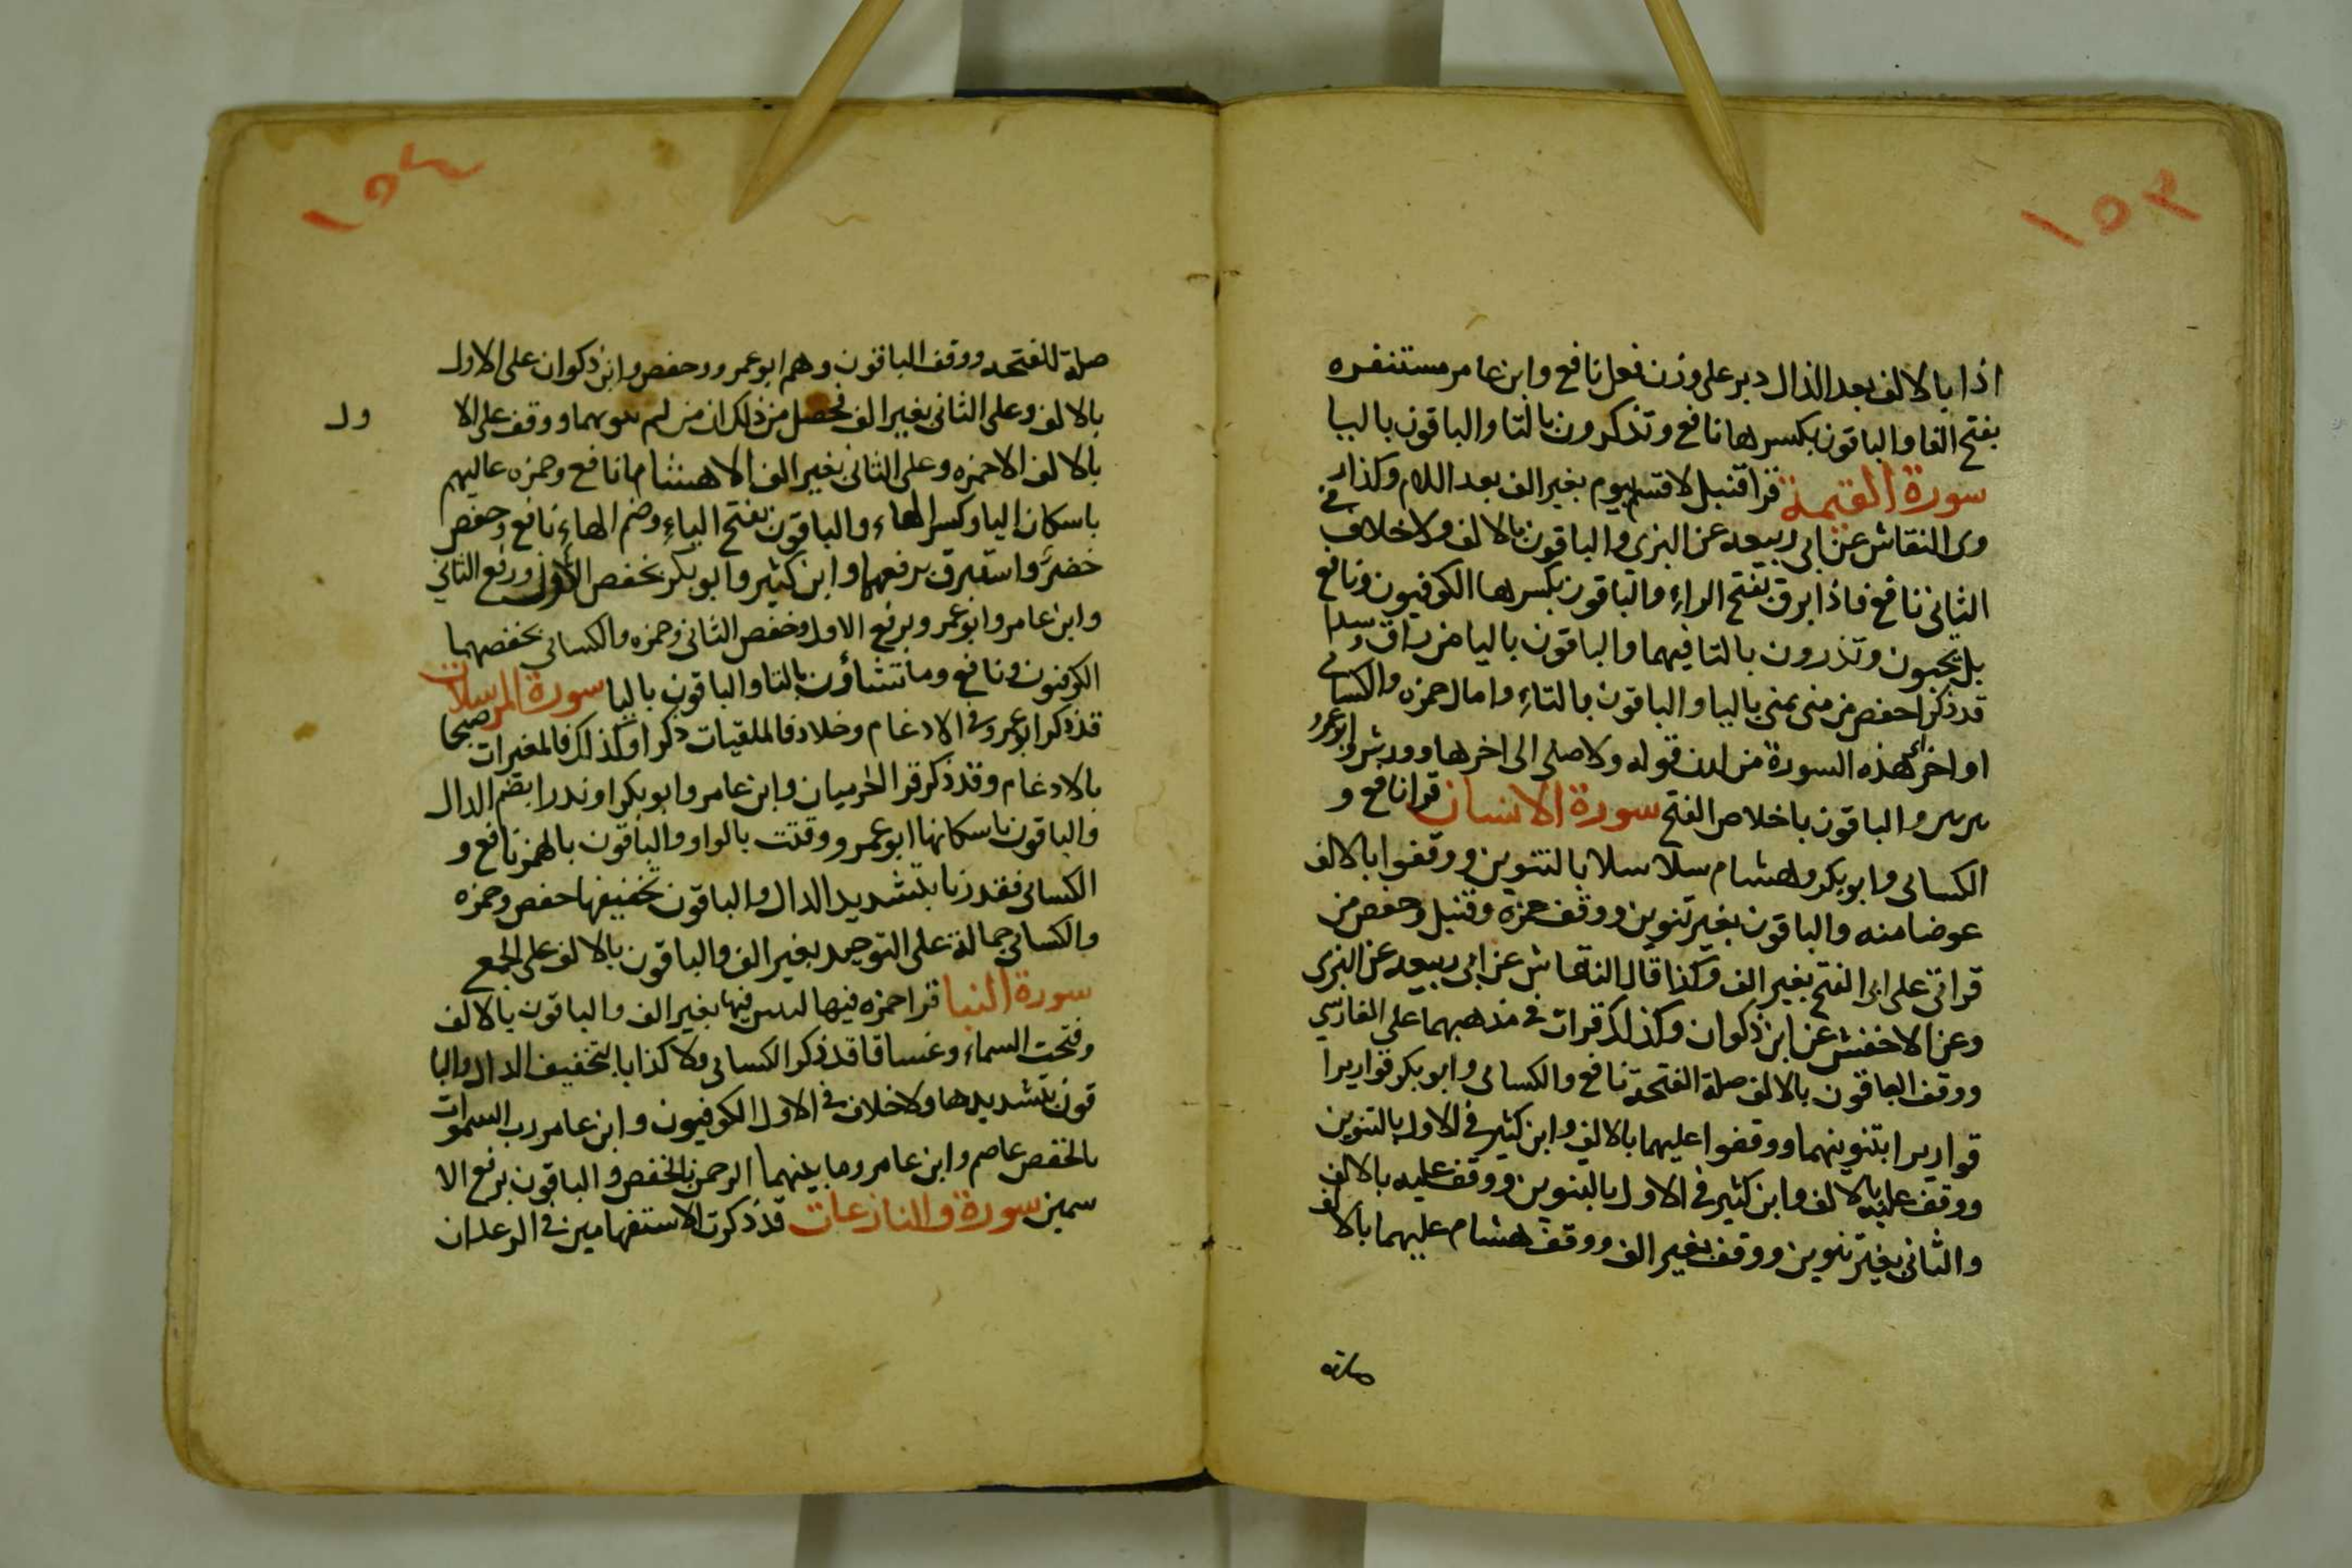 ١٥٣
اذا بالالف بعد الذال دبر على وزن فعل نافع وابن عامر مستنفره
بفتح الفا والباقون بكسرها نافع وتذكرون بالتا والباقون باليا
سورة القيمة قرا قنبل لاقسم بيوم بغير الف بعد اللام وكذا ر
وى النقاش عن ابى ربيعه عن البزي والباقون بالالف ولا خلاف في
الثانى نافع فاذا برق بفتح الراء والباقون بكسرها الكوفيون ونافع
بل تحبون وتذرون بالتا فيهما والباقون باليا من راق وسدا
قد ذكرا حفص من منى يمنى باليا والباقون بالتاء وامال حمزه والكسائى
اواخر هذه السورة من لدن قوله ولا صلى الى اخرها وورش وابو عمرو
بين بين والباقون باخلاص الفتح سورة الانسان قرا نافع و
الكسائى وابو بكر وهشام سلاسلا بالتنوين ووقفوا بالالف
عوضا منه والباقون بغير تنوين ووقف حمزه وقنبل وحفص من
قراتى على ابى الفتح بغير الف وكذا قال النقاش عن ابى ربيعه عن البزى
وعن الاخفش عن ابن ذكوان وكذلك قرات فى مذهبهما على الفارسي
ووقف الباقون بالالف صلة الفتحة نافع والكسائى وابو بكر قواريرا
قواريرا بتنوينهما ووقفوا عليهما بالالف وابن كثير فى الاول بالتنوين
ووقف عليه بالالف وابن كثير فى الاول بالتنوين ووقف عليه بالالف
والثانى بغير تنوين ووقف بغير الف ووقف هشام عليهما بالالف
صلة
١٥٤
صلة للفتحه ووقف الباقون وهم ابو عمرو وحفص وابن ذكوان على الاول
بالالف وعلى الثانى بغير الف فحصل من ذلك ان من لم ينونهما ووقف على الا
ول
بالالف الا حمزه وعلى الثانى بغير الف الا هشاما نافع وحمزه عاليهم
باسكان اليا وكسر الهاء والباقون بفتح الياء وضم الهاء نافع وحفص
خضر واستبرق برفعهما وابن كثير وابو بكر بخفص الاول ورفع الثاني
وابن عامر وابو عمرو برفع الاول وخفص الثانى وحمزه والكسائى بخفصهما
الكوفنون ونافع وما تشاؤن بالتا والباقون باليا سورة المرسلات
قد ذكر ابو عمرو فى الادغام وخلاد فالملقيات ذكرا وكذلك فالمغيرات صبحا
بالادغام وقد ذكر قرا الحرميان وابن عامر وابو بكر او نذرا بضم الذال
والباقون باسكانها ابو عمرو وقتت بالواو والباقون بالهمز نافع و
الكسائى فقدرنا بتشديد الدال والباقون بتخفيفها حفص وحمزه
والكسائى جمالة على التوحيد بغير الف والباقون بالالف على الجمع
سورة النبا قرا حمزه فيها لبثين فيها بغير الف والباقون بالالف
وفتحت السماء وغساقا قد ذكر الكسائى ولا كذابا بتخفيف الذال والبا
قون بتشديدها ولا خلاف فى الاول الكوفيون وابن عامر رب السموات
بالخفص عاصم وابن عامر وما بينهما الرحمن بالخفص والباقون برفع الا
سمين سورة والنازعات قد ذكرت الاستفهامين فى الرعد ان